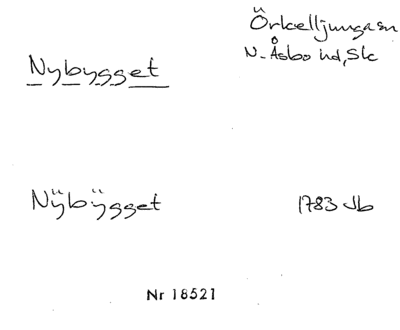 Örkelljunga sn
N. Åsbo hd, Sk
Nybygget
Nÿbÿgget
1783 Jb
Nr 18521